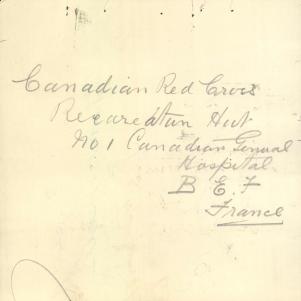 Canadian Red Cross
Recareatun Hut
No 1 Canadian General
Hospital
B E F
France